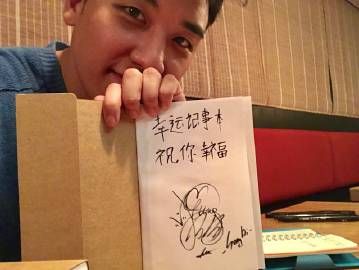 幸运记事本
祝你幸福